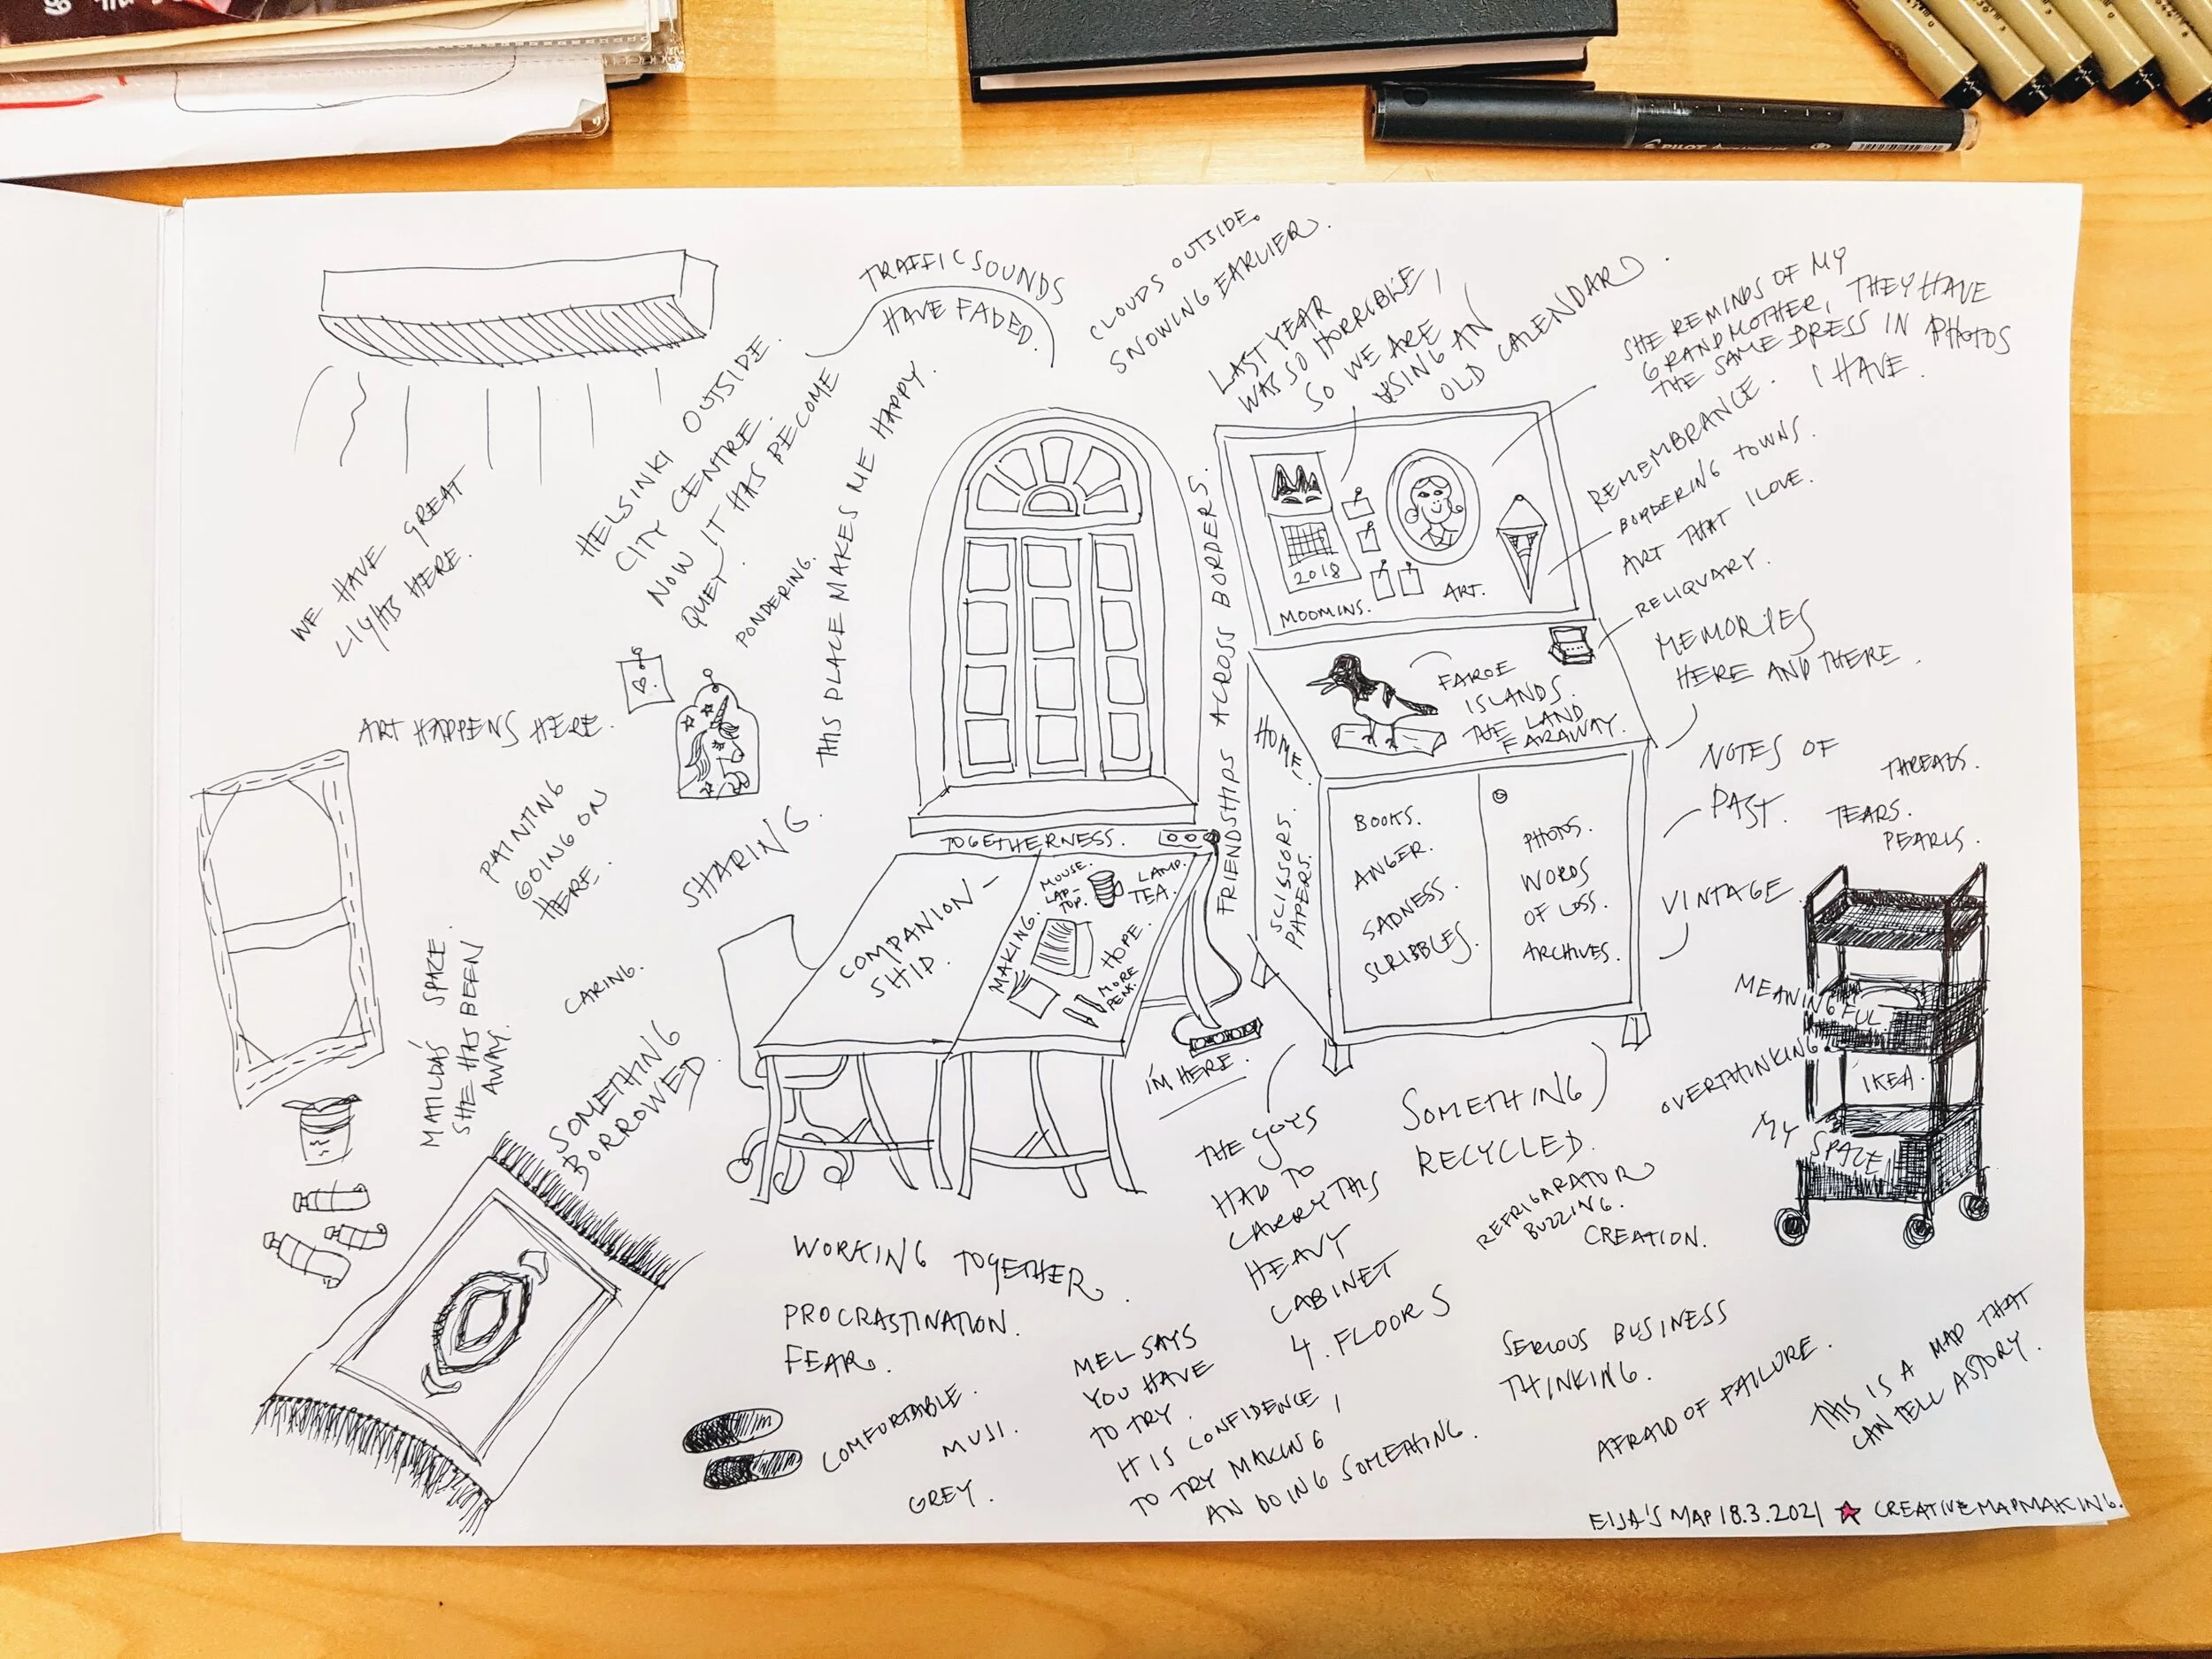 PILOT
TRAFFIC SOUNDS
HAVE FADED.
CLOUDS OUTSIDE.
SNOWING EARLIER.
LAST YEAR
WAS SO HORRIBLE,
SO WE ARE
USING AN
OLD CALENDAR.
SHE REMINDS OF MY
GRANDMOTHER, THEY HAVE
THE SAME DRESS IN PHOTOS
I HAVE.
REMEMBRANCE.
BORDERING TOWNS.
ART THAT I LOVE.
RELIQUARY.
MEMORIES
HERE AND THERE.
WE HAVE GREAT
LIGHTS HERE.
HELSINKI OUTSIDE.
CITY CENTRE.
NOW IT HAS BECOME
QUIET.
PONDERING.
THIS PLACE MAKES ME HAPPY.
FRIENDSHIPS ACROSS BORDERS.
2018
MOOMINS.
ART.
FAROE
ISLANDS.
THE LAND
FARAWAY.
HOME.
SCISSORS.
PAPERS.
ART HAPPENS HERE.
PAINTING
GOING ON
HERE.
SHARING.
CARING.
MATILDA'S SPACE.
SHE HAS BEEN
AWAY.
SOMETHING
BORROWED.
TOGETHERNESS.
COMPANION-
SHIP.
MAKING.
MOUSE.
LAP-
TOP.
LAMP.
TEA.
HOPE.
MORE
PENS.
I'M HERE.
BOOKS.
ANGER.
SADNESS.
SCRIBBLES.
PHOTOS.
WORDS
OF LOSS.
ARCHIVES.
NOTES OF
PAST.
THREADS.
TEARS.
PEARLS.
VINTAGE
MEANINGFUL
OVERTHINKING
IKEA.
MY
SPACE
THE GUYS
HAD TO
CARRY THIS
HEAVY
CABINET
4. FLOORS
SOMETHING
RECYCLED.
REFRIGARATOR
BUZZING.
CREATION.
WORKING TOGETHER.
PROCRASTINATION.
FEAR.
COMFORTABLE.
MUJI.
GREY.
MEL SAYS
YOU HAVE
TO TRY.
IT IS CONFIDENCE,
TO TRY MAKING
AN DOING SOMETHING.
SERIOUS BUSINESS
THINKING.
AFRAID OF FAILURE.
THIS IS A MAP THAT
CAN TELL A STORY.
EIJA'S MAP 18.3.2021 ★ CREATIVEMAPMAKING.